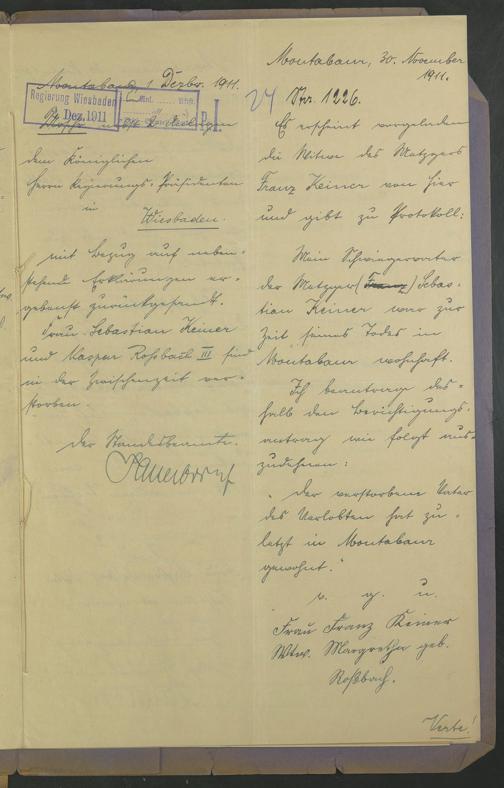 Montabaur, 1. Dezbr. 1911.
Regierung Wiesbaden
2. Dez. 1911
P. I.
dem Königlichen
Herrn Regierungs-Präsidenten
in
Wiesbaden.
mit Bezug auf neben-
stehende Erklärungen er-
gebenst zurückgesandt.
Frau Sebastian Keiner
und Kaspar Roßbach III sind
in der Zwischenzeit ver-
storben.
Der Standesbeamte.
Montabaur, 30. November
1911.
Nr. 1226.
Es erscheint vorgeladen
die Witwe des Metzgers
Franz Keiner von hier
und gibt zu Protokoll:
Mein Schwiegervater
der Metzger (Franz) Sebas-
tian Keiner war zur
Zeit seines Todes in
Montabaur wohnhaft.
Ich beantrage des-
halb den Berichtigungs-
antrag wie folgt aus-
zudehnen:
"Der verstorbene Vater
des Verlobten hat zu-
letzt in Montabaur
gewohnt."
v. g. u.
Frau Franz Keiner
Wtw. Margretha geb.
Roßbach.
Verte!